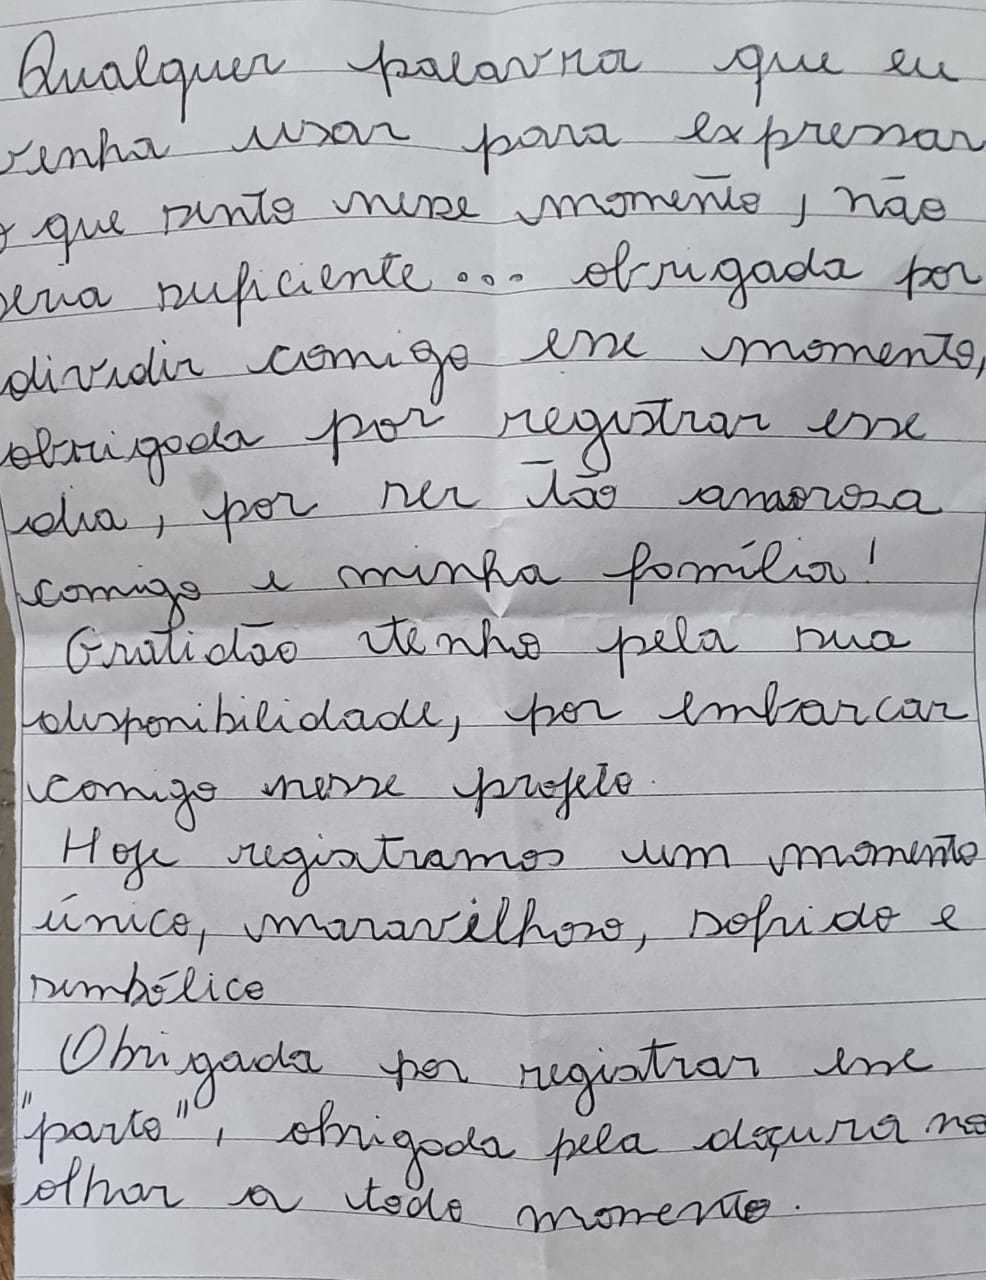 Qualquer palavra que eu
venha usar para expressar
o que sinto nesse momento, não
seria suficiente... obrigada por
dividir comigo esse momento,
obrigada por registrar esse
dia, por ser tão amorosa
comigo e minha família!
Gratidão tenho pela sua
disponibilidade, por embarcar
comigo nesse projeto.
Hoje registramos um momento
único, maravilhoso, sofrido e
simbólico
Obrigada por registrar esse
"parto", obrigada pela doçura no
olhar a todo momento.